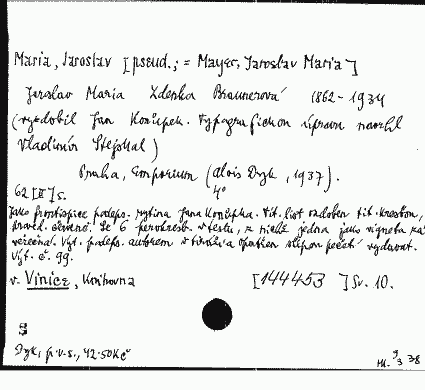 Maria, Jaroslav [pseud.; = Mayer, Jaroslav Maria]
Jaroslav Maria Zdenka Braunerová 1862-1934
(vyzdobil Jan Konůpek. Typografickou úpravu navrhl
Vladimír
Praha, Emporium (Alois Dyk, 1937).
62 [II] s. 4°
Jako frontispice podeps. rytina Jana Konůpka. Tit. list ozdoben tit. kresbou,
proved. červeně. Je 6 perokreseb v textu, z nichž jedna jako vigneta na
Výt. podeps. autorem v tiráži a opatřen slepou pečetí vydavat.
Výt. č. 99.
v. Vinice, Knihovna [144453] Sv. 10.
Dyk, p.v.s., 42.50 Kč
9/3 38